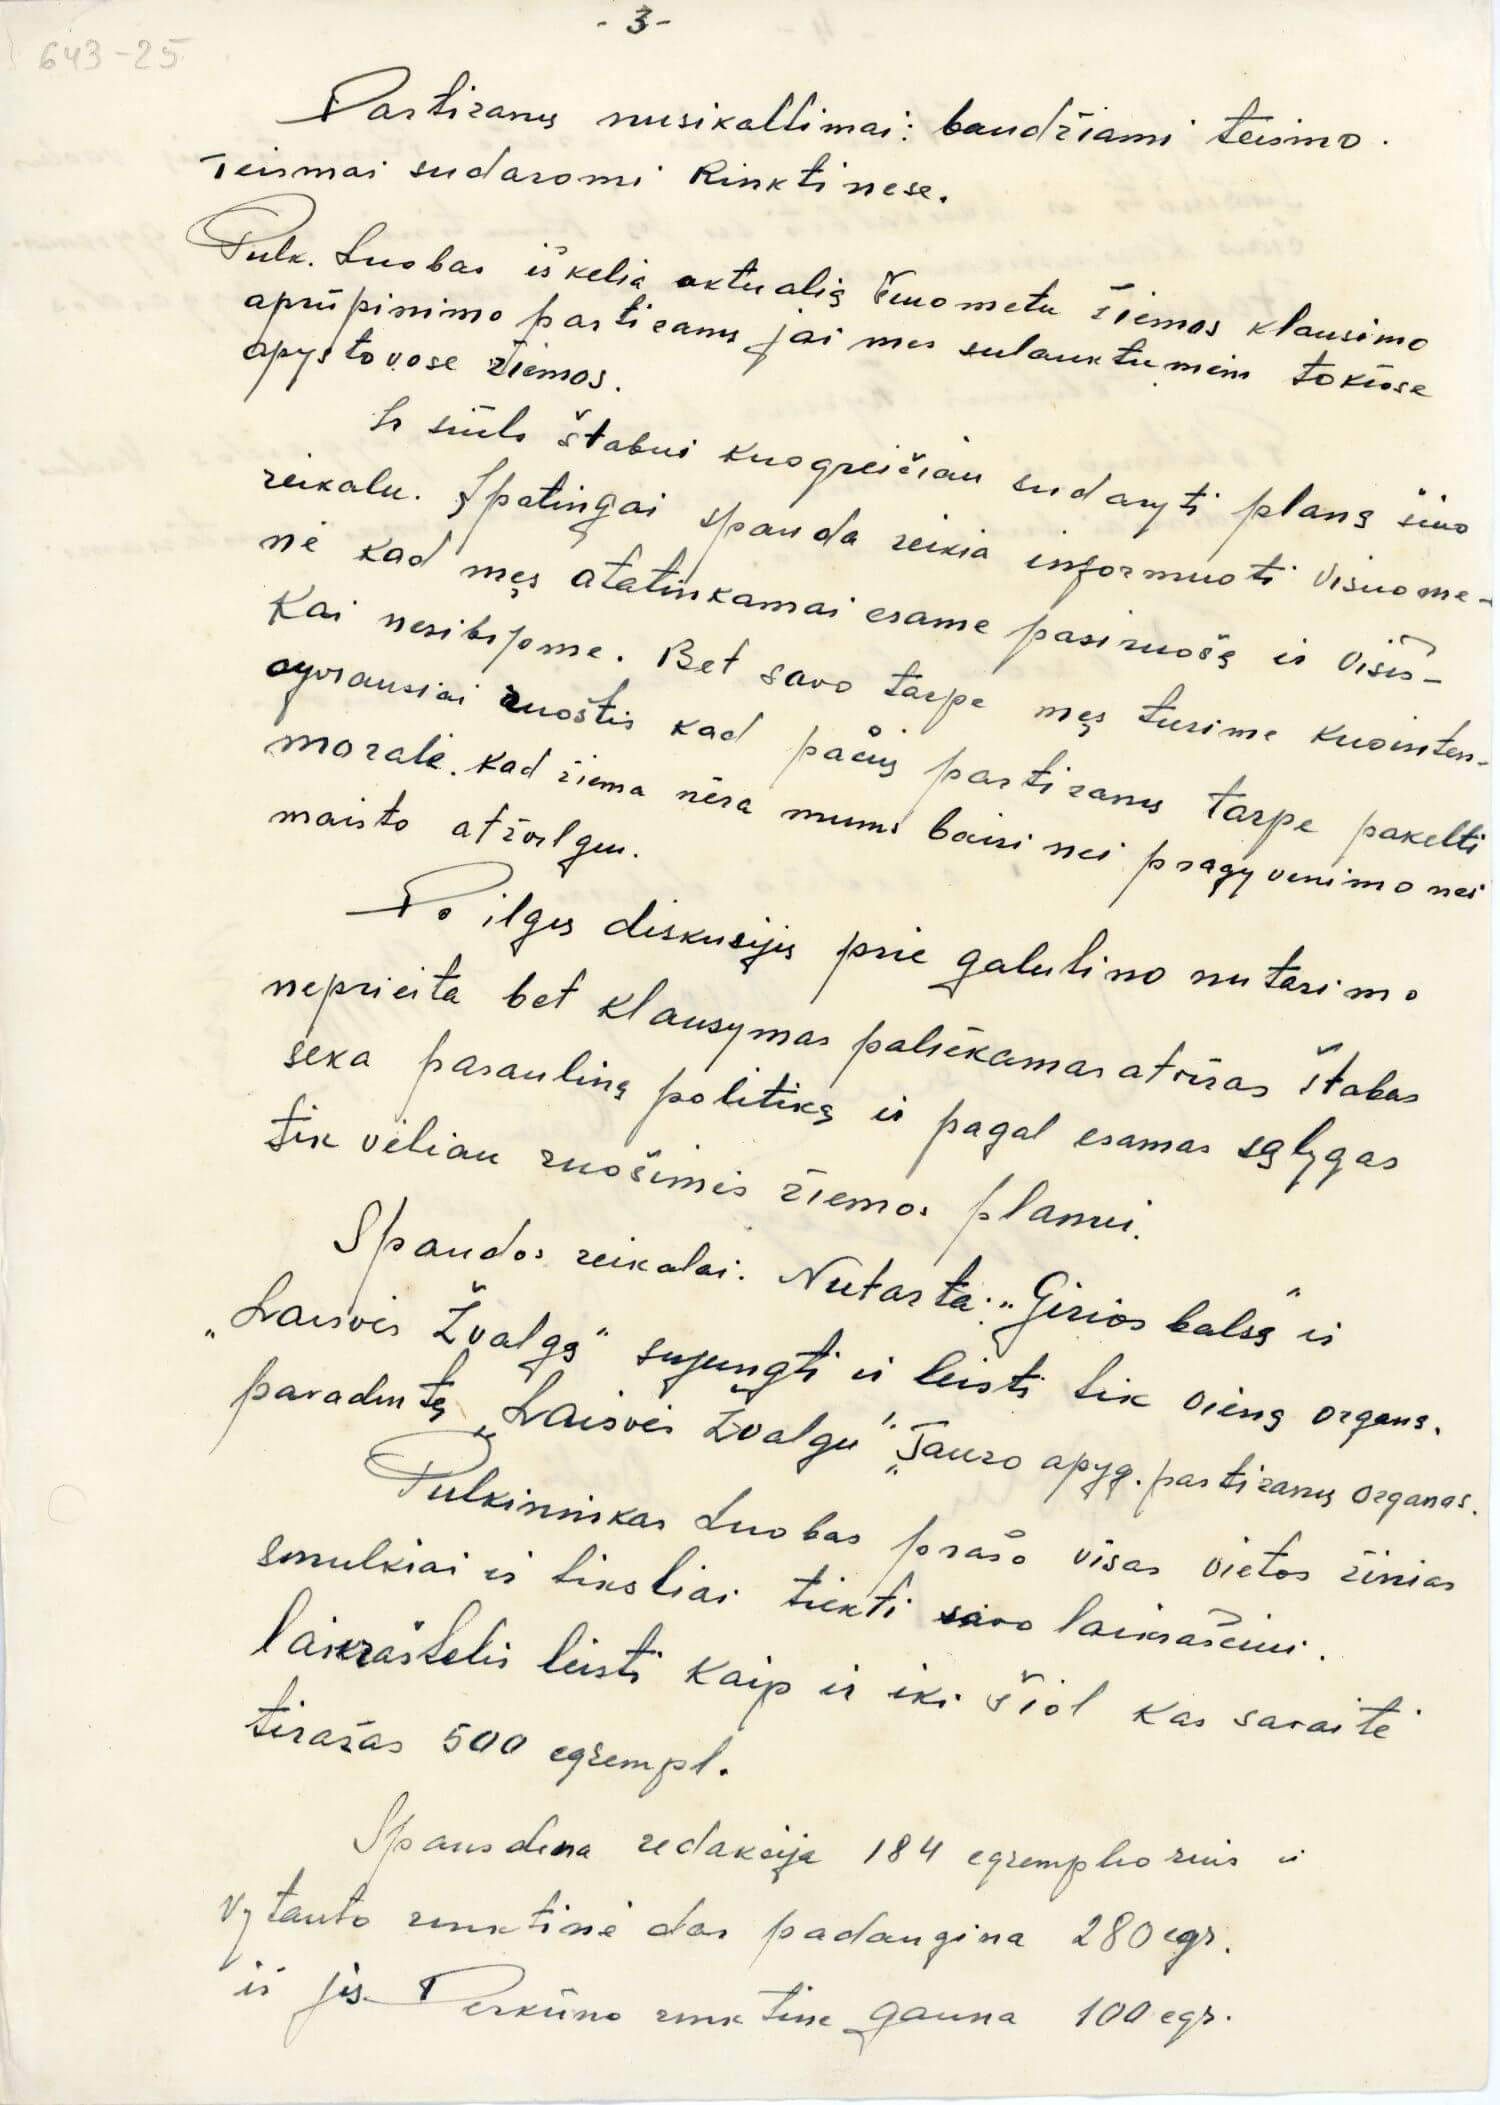 - 3 -
643-25
Partizanų nusikaltimai: baudžiami teismo.
Teismai sudaromi Rinktinese.
Pulk. Luobas iškelia aktualią šiuo metu žiemos klausimo
aprūpinimo partizanų jai mes sulauktumėm tokiose
apystovose žiemos.
Ir siūlo štabui kuogreičiau sudaryti planą šiuo
reikalu. Ypatingai spauda reikia informuoti visuome-
nė kad męs atatinkamai esame pasiruošę ir visiš-
kai nesibijome. Bet savo tarpe męs turime kuointen-
syviausiai ruoštis kad pačių partizanų tarpe pakelti
moralę. kad žiema nėra mums baisi nei pragyvenimo nei
maisto atžvilgiu.
Po ilgų diskusijų prie galutino nutarimo
neprieita bet klausymas paliekamas atviras štabas
seka pasaulinę politiką ir pagal esamas sąlygas
tik vėliau ruošimės žiemos planui.
Spaudos reikalai. Nutarta: „Girios balsą" ir
„Laisvės Žvalgą" sujungti ir leisti tik vieną organą.
pavadintą „Laisvės Žvalgu". „Tauro apyg. partizanų organas.
Pulkininkas Luobas prašo visas vietos žinias
smulkiai ir tiksliai tiekti savo laikraščiui.
laikraštelis leisti kaip ir iki šiol kas savaitė
tiražas 500 egzempl.
Spausdina redakcija 184 egzempliorius ir
Vytauto rinktinė dar padaugina 280 egz.
iš jų Perkūno rinktinė gauna 100 egz.